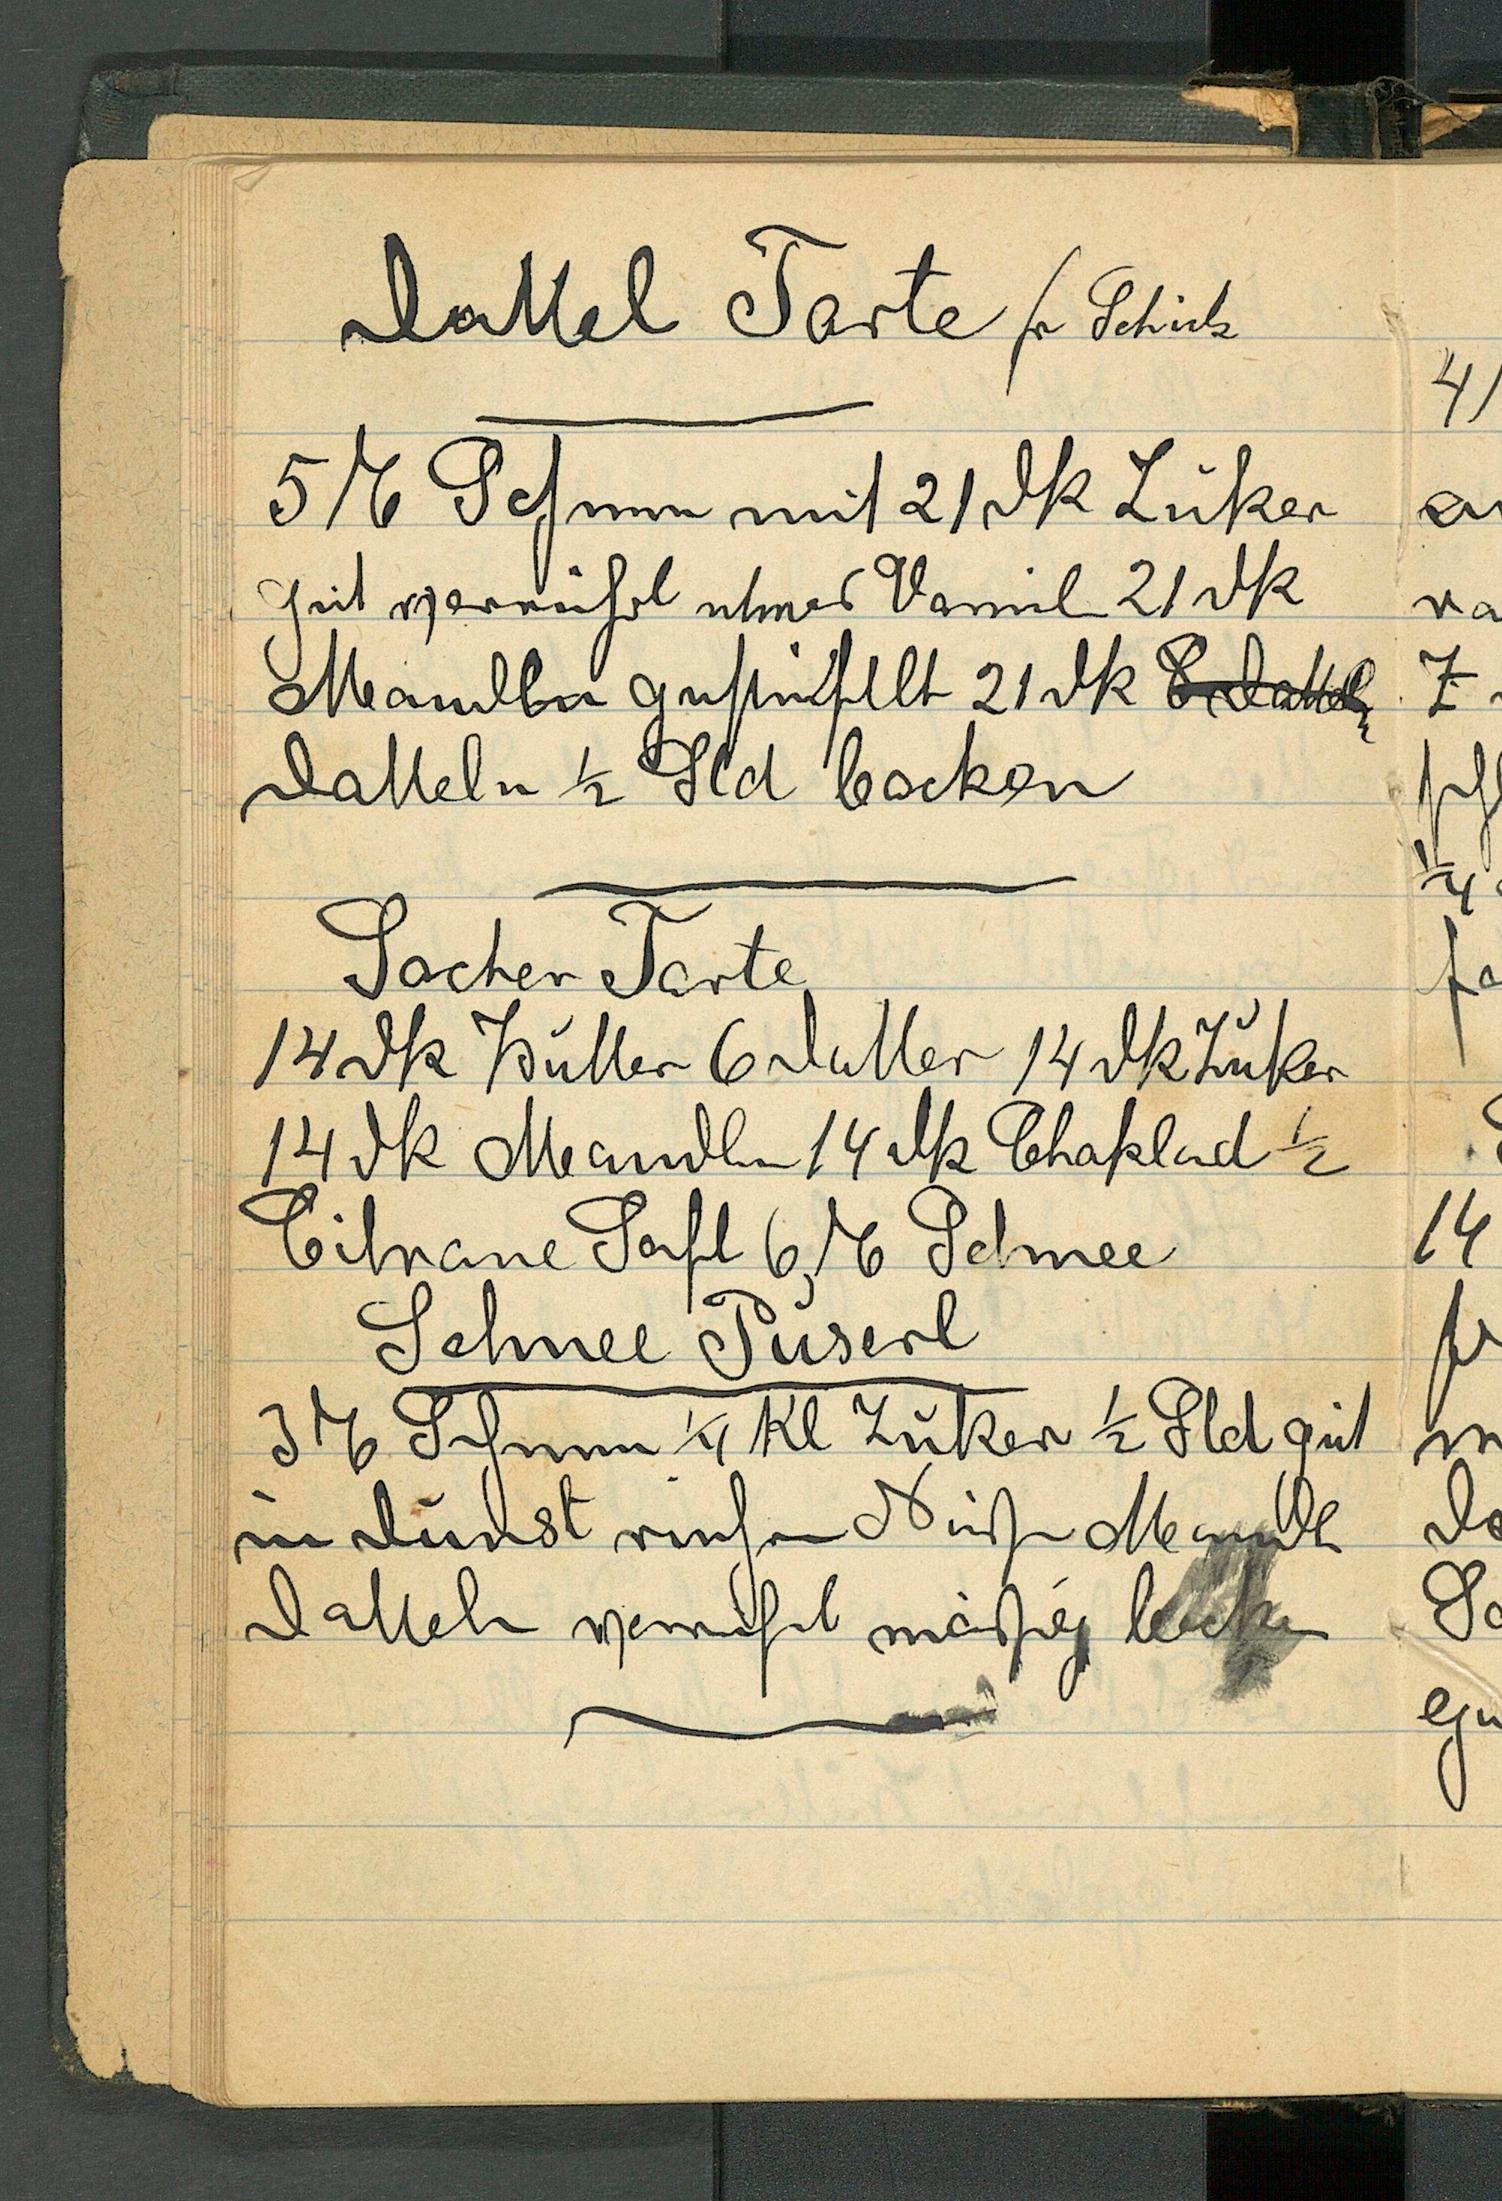 Dattel Torte fr Schick
5 Kl Schnee mit 21 dk Zuker
gut verrührt etwas Vanil 21 dk
Mandln gestiftelt 21 dk
Datteln ½ Std backen
Sacher Torte
14 dk Butter 6 Dotter 14 dk Zuker
14 dk Mandln 14 dk Chokolad ½
Citrone Saft 6 Kl Schnee
Schnee Puserl
3 Kl Schnee ¼ Kl Zuker ½ Std gut
in Dunst rühren Nüsse Mandl
Datteln verrührt mässig backen
4/
14